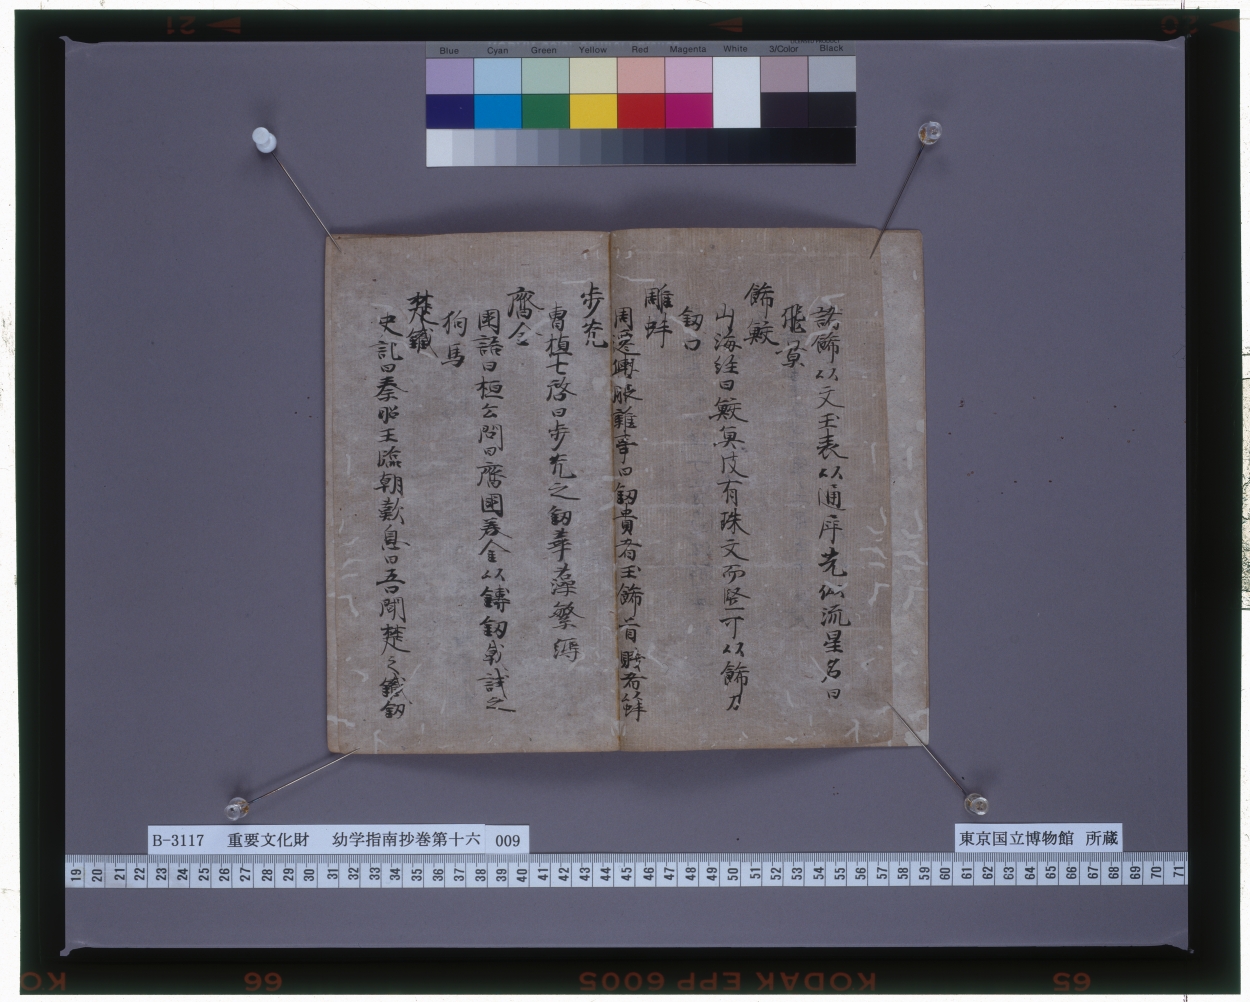 Blue Cyan Green Yellow Red Magenta White 3/Color Black
諸飾以文玉表以通犀光似流星名曰
飛景
飾鮫
山海経曰鮫魚皮有珠文而堅可以飾刀
釼口
雕蚌
周遷輿服雜事曰釼貴者玉飾首賤者以蚌
步光
曹植七啓曰步光之釼華藻繁縟
齊金
国語曰桓公問曰齊國美金以鑄釼戟試之
狗馬
楚鐵
史記曰秦昭王臨朝歎息曰吾聞楚之鐵釼
B-3117 重要文化財 幼学指南抄巻第十六 009
東京国立博物館 所蔵
19 20 21 22 23 24 25 26 27 28 29 30 31 32 33 34 35 36 37 38 39 40 41 42 43 44 45 46 47 48 49 50 51 52 53 54 55 56 57 58 59 60 61 62 63 64 65 66 67 68 69 70 71
65 KODAK EPP 6005 66 KO